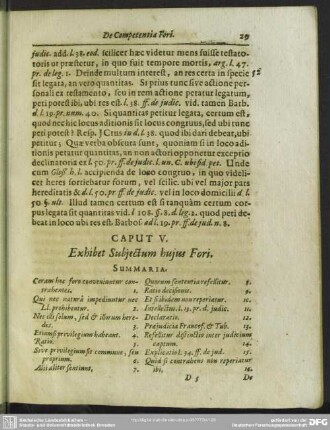 De Competentia Fori. 29
judic. add. l. 38. eod. scilicet hæc videtur mens fuisse testato-
toris ut præstetur, in quo fuit tempore mortis, arg. l. 47.
pr. de leg. 1. Deinde multum interest, an res certa in specie
sit legata, an vero quantitas. Si prius tunc sive actione per-
sonali ex testamento, seu in rem actione peratur legatum,
peti potest ibi, ubi res est. l. 38. ff. de judic. vid. tamen Barb.
d. l. 19. pr. num. 40. Si quantitas petitur legata, certum est,
quod nec hic locus aditionis sit locus congruus, sed ubi tunc
peti potest? Resp. JCtus in d. l. 38. quod ibi dari debeat, ubi
petitur; Quæ verba obscura sunt, quoniam si in loco adi-
tionis peratur quantitas, an non actori opponeretur exceptio
declinatoria ex l. 50. pr. ff. de judic. l. un. C. ubi fid. pet. Unde
cum Gloss. h. l. accipienda de loco congruo, in quo videli-
cet heres sortiebatur forum, vel scilic. ubi vel major pars
hereditatis & d. l. 50. pr. ff. de judic. vel in loco domicilii d. l.
50. §. ult. Illud tamen certum est si tanquàm certum cor-
pus legata sit quantitas vid. l. 108. §. 8. d. leg. 1. quod peti de-
beat in loco ubi res est. Barbos. ad l. 19. pr. ff. de jud. n. 8.
CAPUT V.
Exhibet Subjectum hujus Fori.
SUMMARIA.
Coram hoc foro conveniuntur con-
trahentes. 1.
Qui nec naturâ impediuntur nec
LL. prohibentur. 2.
Nec illi solum, sed & illorum here-
des. 3.
Etiamsi privilegium habeant. 4.
Ratio. 5.
Sive privilegium sit commune, seu
proprium. 6.
Alii aliter sentiunt. 7.
Quorum sententia refellitur. 8.
Ratio decisionis. 9.
Et si ibidem non reperiatur. 10.
Intellectus l. 19. pr. d. judic. 11.
Declaratio. 12.
Præjudicia Francof. & Tub. 13.
Refellitur distinctio inter judicium
captum. 14.
Explicatio l. 34. ff. de jud. 15.
Quid si contrahens non reperiatur
ibi. 16.
D 3 De